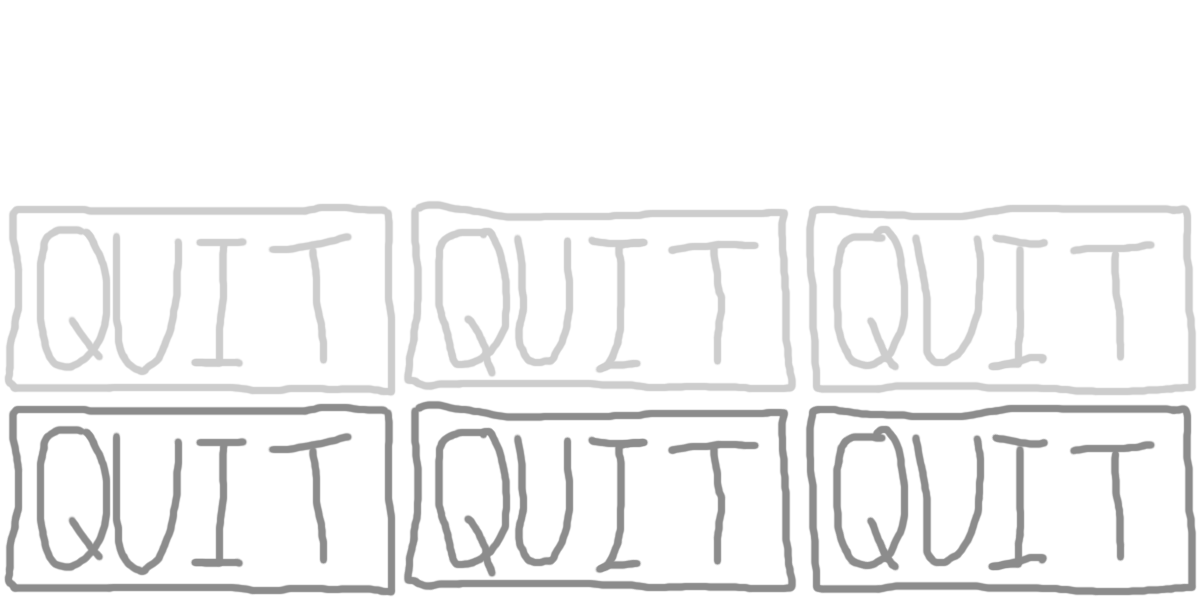 QUIT QUIT QUIT
QUIT QUIT QUIT